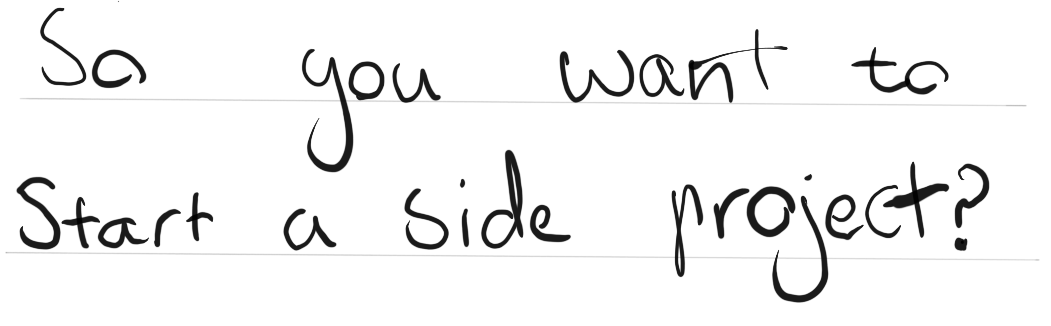 So you want to
Start a side project?